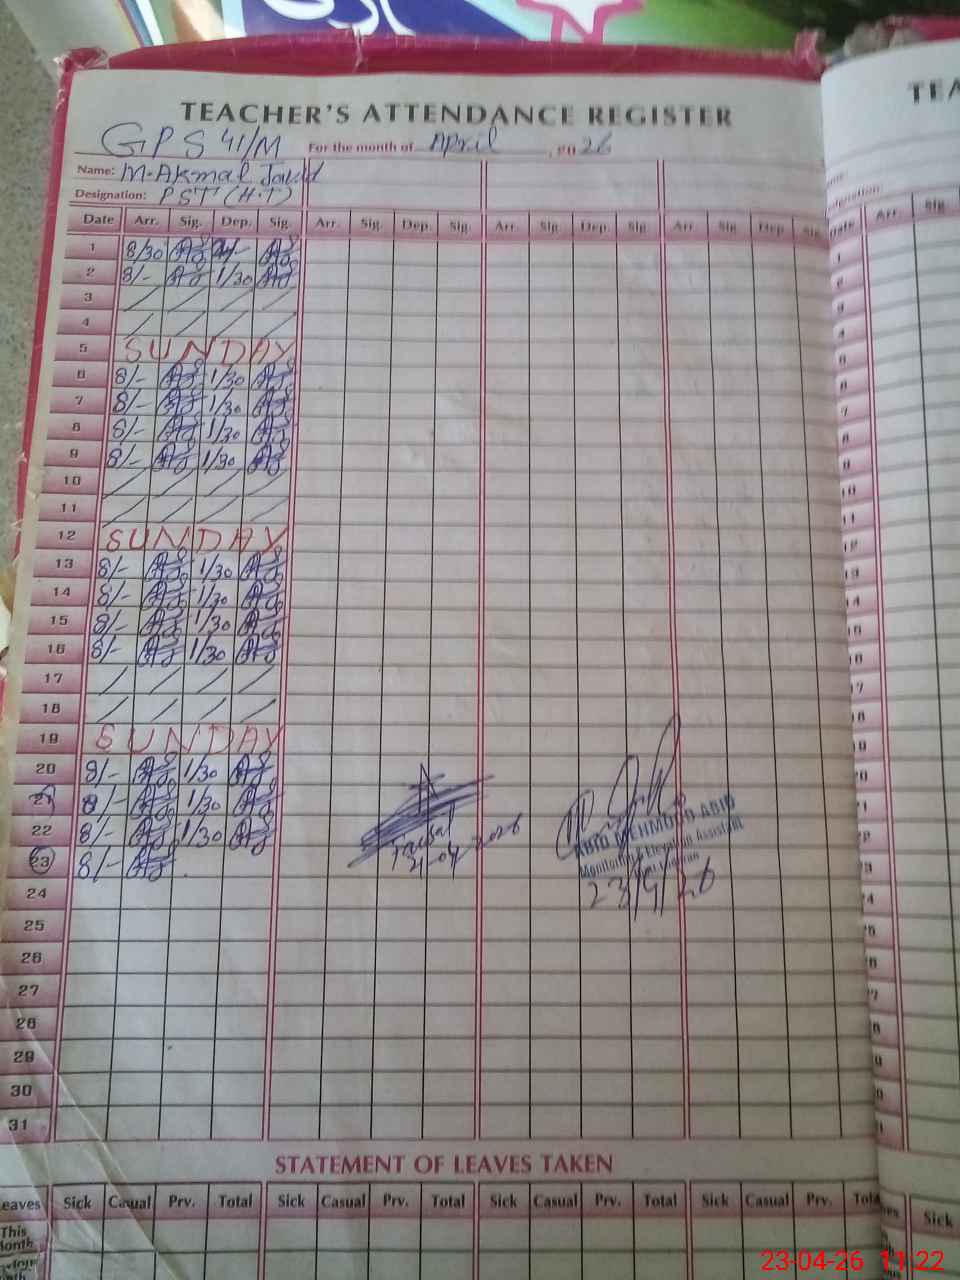 TEACHER'S ATTENDANCE REGISTER
GPS 41/M For the month of April, 2026
Name: M. Akmal Javid
Designation: PST (H.T)
Date Arr. Sig. Dep. Sig. Arr. Sig. Dep. Sig. Arr. Sig. Dep. Sig. Arr Sig. Dep Sig.
1 8/30
2 8/- 1/30
3 / / / /
4 / / / /
5 SUNDAY
6 8/- 1/30
7 8/- 1/30
8 8/- 1/30
9 8/- 1/30
10 / / / /
11 / / / /
12 SUNDAY
13 8/- 1/30
14 8/- 1/30
15 8/- 1/30
16 8/- 1/30
17 / / / /
18 / / / /
19 SUNDAY
20 8/- 1/30
21 8/- 1/30
22 8/- 1/30
23 8/-
24
25
26
27
28
29
30
31
ABID MEHMOOD ABID
Monitoring & Elevation Assistant
23/4/26
STATEMENT OF LEAVES TAKEN
eaves Sick Casual Prv. Total Sick Casual Prv. Total Sick Casual Prv. Total Sick Casual Prv. Tota
This
Month
TEA
Date Arr. Sig.
Sick
23-04-26 11:22